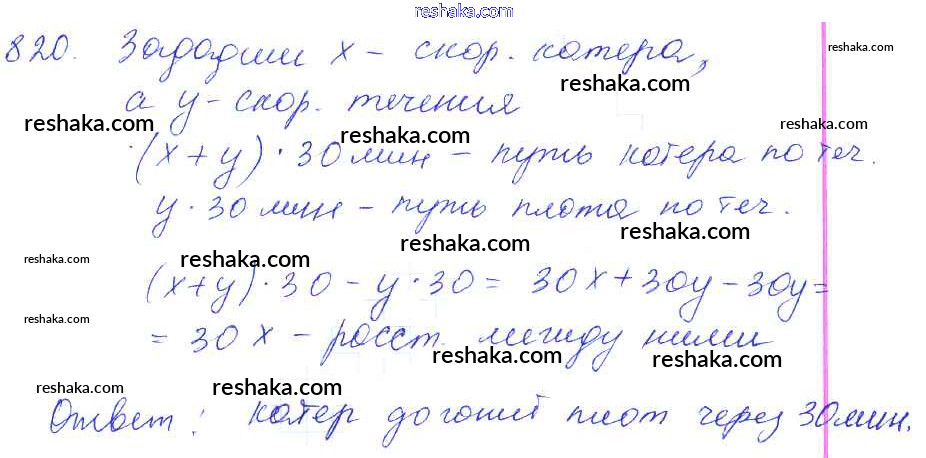 reshaka.com
820. Зададим х - скор. катера,
reshaka.com
reshaka.com
а у - скор. течения
reshaka.com
reshaka.com
reshaka.com
(х + у) · 30 мин - путь катера по теч.
у · 30 мин - путь плота по теч.
reshaka.com
reshaka.com
reshaka.com
(х+у) · 30 - у · 30 = 30х + 30у - 30у =
reshaka.com
= 30 х - расст. между ними
reshaka.com
reshaka.com
reshaka.com
reshaka.com
reshaka.com
Ответ: катер догонит плот через 30 мин.